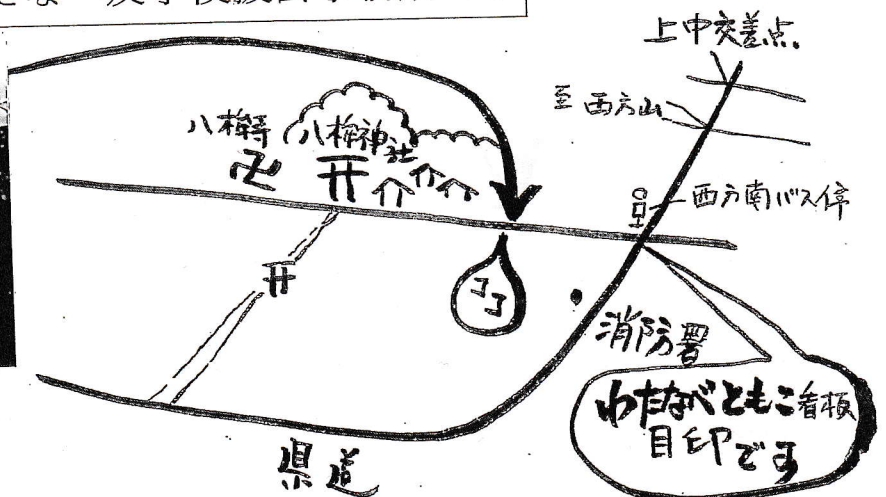 上中交差点
至 西方山
八椚寺
八椚神社
西方南バス停
ココ
消防署
わたなべともこ看板
目印です
県道